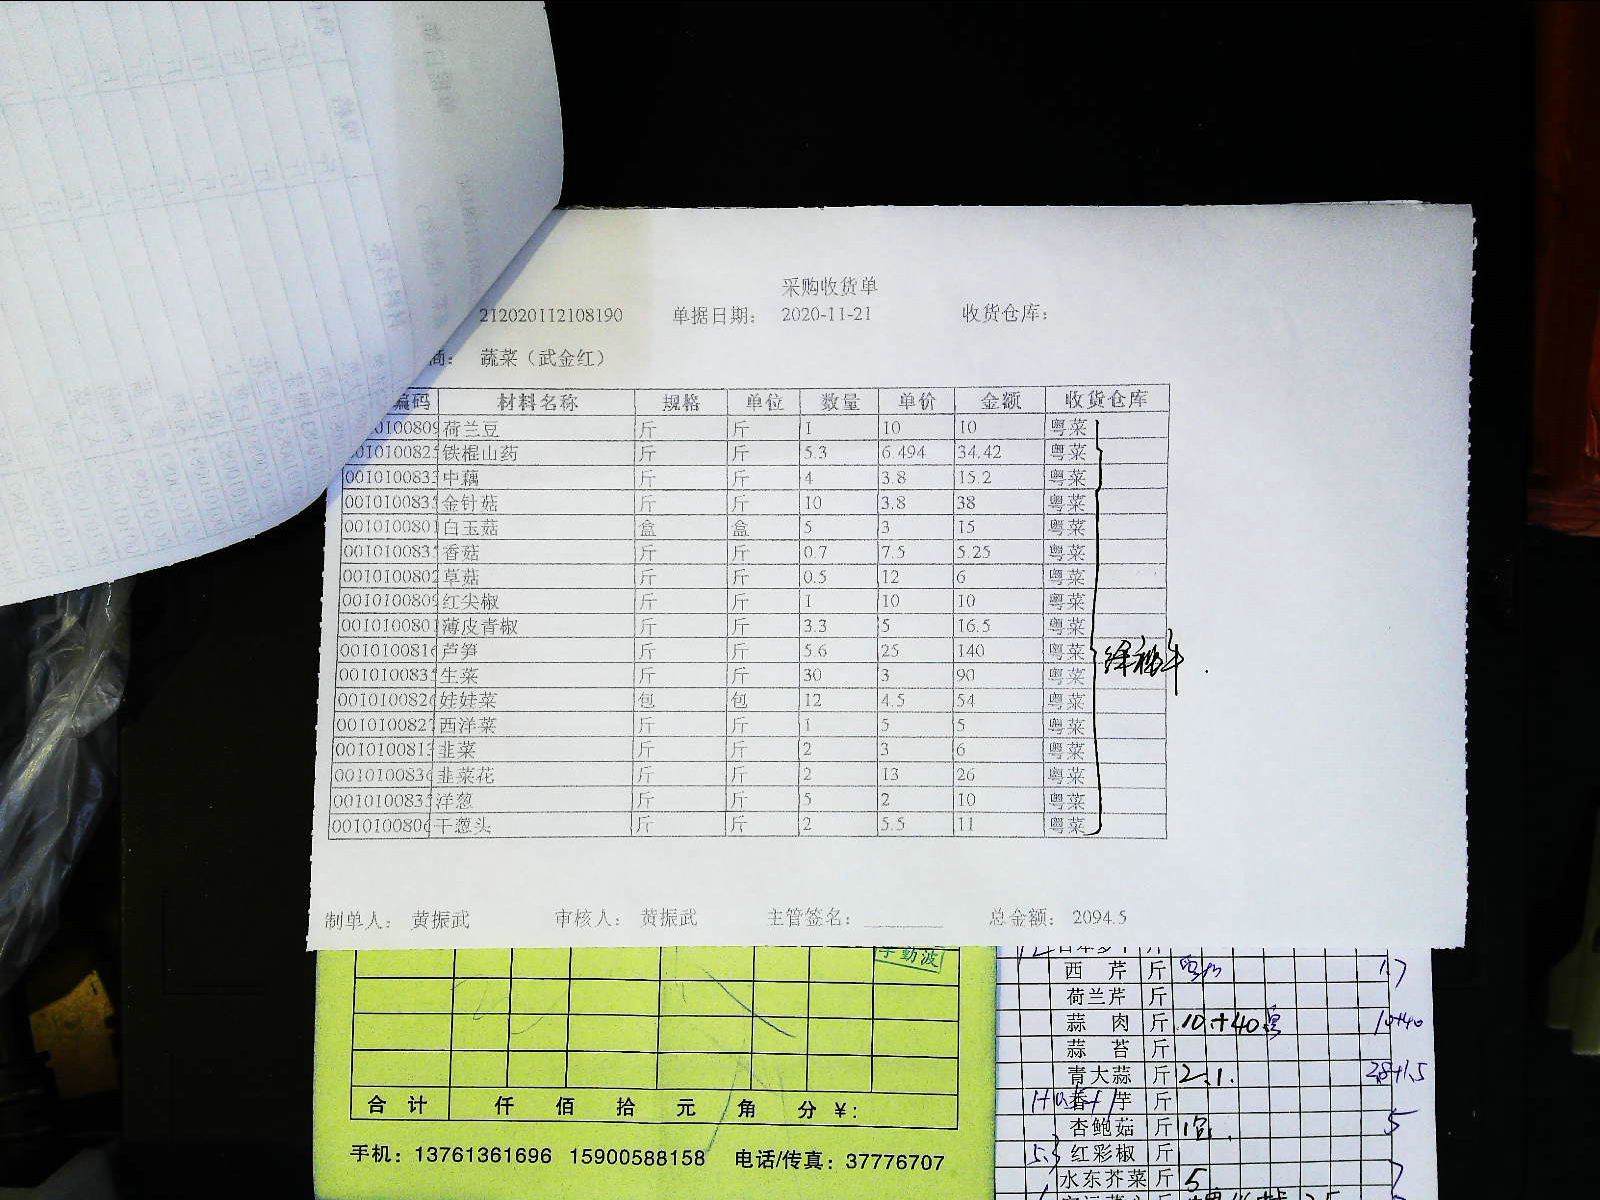 采购收货单
212020112108190 单据日期： 2020-11-21 收货仓库：
商： 蔬菜（武金红）
编码 材料名称 规格 单位 数量 单价 金额 收货仓库
荷兰豆 斤 斤 1 10 10 粤菜
铁棍山药 斤 斤 5.3 6.494 34.42 粤菜
中藕 斤 斤 4 3.8 15.2 粤菜
金针菇 斤 斤 10 3.8 38 粤菜
白玉菇 盒 盒 5 3 15 粤菜
香菇 斤 斤 0.7 7.5 5.25 粤菜
草菇 斤 斤 0.5 12 6 粤菜
红尖椒 斤 斤 1 10 10 粤菜
薄皮青椒 斤 斤 3.3 5 16.5 粤菜
芦笋 斤 斤 5.6 25 140 粤菜
生菜 斤 斤 30 3 90 粤菜
娃娃菜 包 包 12 4.5 54 粤菜
西洋菜 斤 斤 1 5 5 粤菜
韭菜 斤 斤 2 3 6 粤菜
韭菜花 斤 斤 2 13 26 粤菜
洋葱 斤 斤 5 2 10 粤菜
干葱头 斤 斤 2 5.5 11 粤菜
制单人： 黄振武 审核人： 黄振武 主管签名： 总金额： 2094.5
李勤波
合计 仟 佰 拾 元 角 分 ¥:
手机：13761361696 15900588158 电话/传真：37776707
西芹 斤 1.7
荷兰芹 斤
蒜肉 斤 10.+40 10+40
蒜苔 斤
青大蒜 斤 2.1. 2.8+1.5
香芋 斤
杏鲍菇 斤 5
5.3 红彩椒 斤
水东芥菜 斤 5